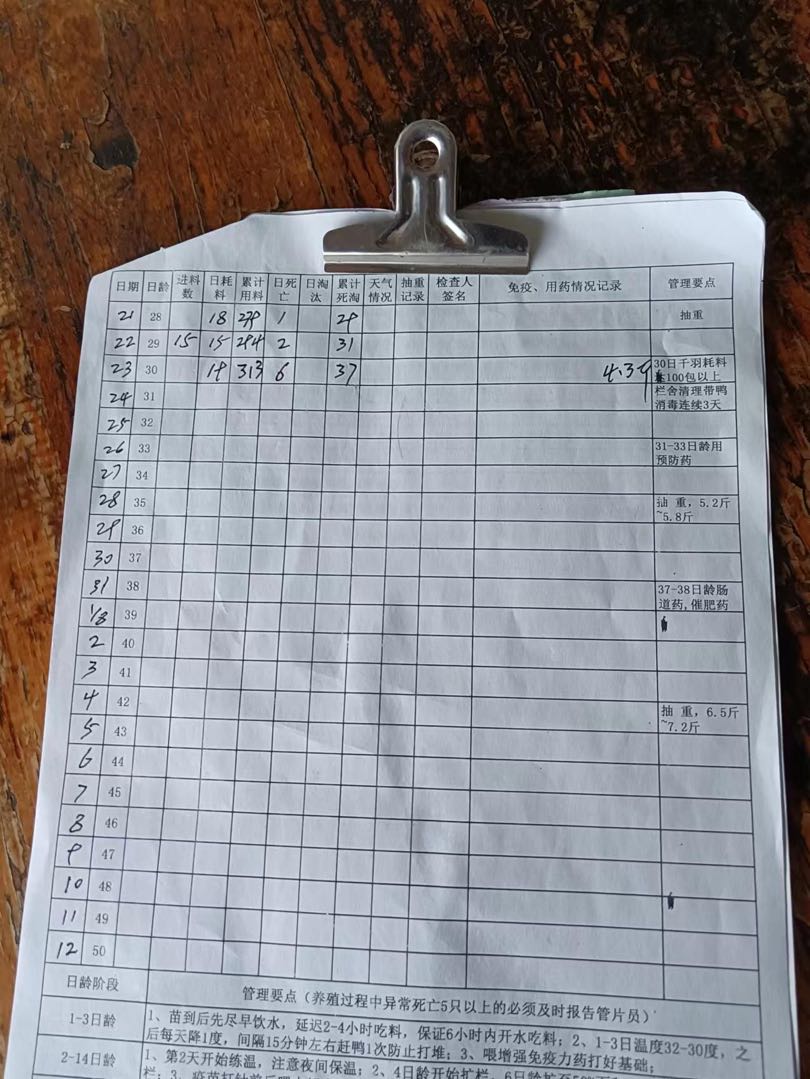 日期 日龄 进料数 日耗料 累计用料 日死亡 日淘汰 累计死淘 天气情况 抽重记录 检查人签名 免疫、用药情况记录 管理要点
21 28 18 279 1 29 抽重
22 29 15 15 294 2 31
23 30 19 313 6 37 4.39 30日千羽耗料100包以上
24 31 栏舍清理带鸭消毒连续3天
25 32
26 33 31-33日龄用预防药
27 34
28 35 抽 重，5.2斤~5.8斤
29 36
30 37
31 38 37-38日龄肠道药,催肥药
1/8 39
2 40
3 41
4 42 抽 重，6.5斤~7.2斤
5 43
6 44
7 45
8 46
9 47
10 48
11 49
12 50
日龄阶段 管理要点（养殖过程中异常死亡5只以上的必须及时报告管片员）
1-3日龄 1、苗到后先尽早饮水，延迟2-4小时吃料，保证6小时内开水吃料；2、1-3日温度32-30度，之
后每天降1度，间隔15分钟左右赶鸭1次防止打堆；3、喂增强免疫力药打好基础；
2-14日龄 1、第2天开始练温，注意夜间保温；2、4日龄开始扩栏，6日龄扩至